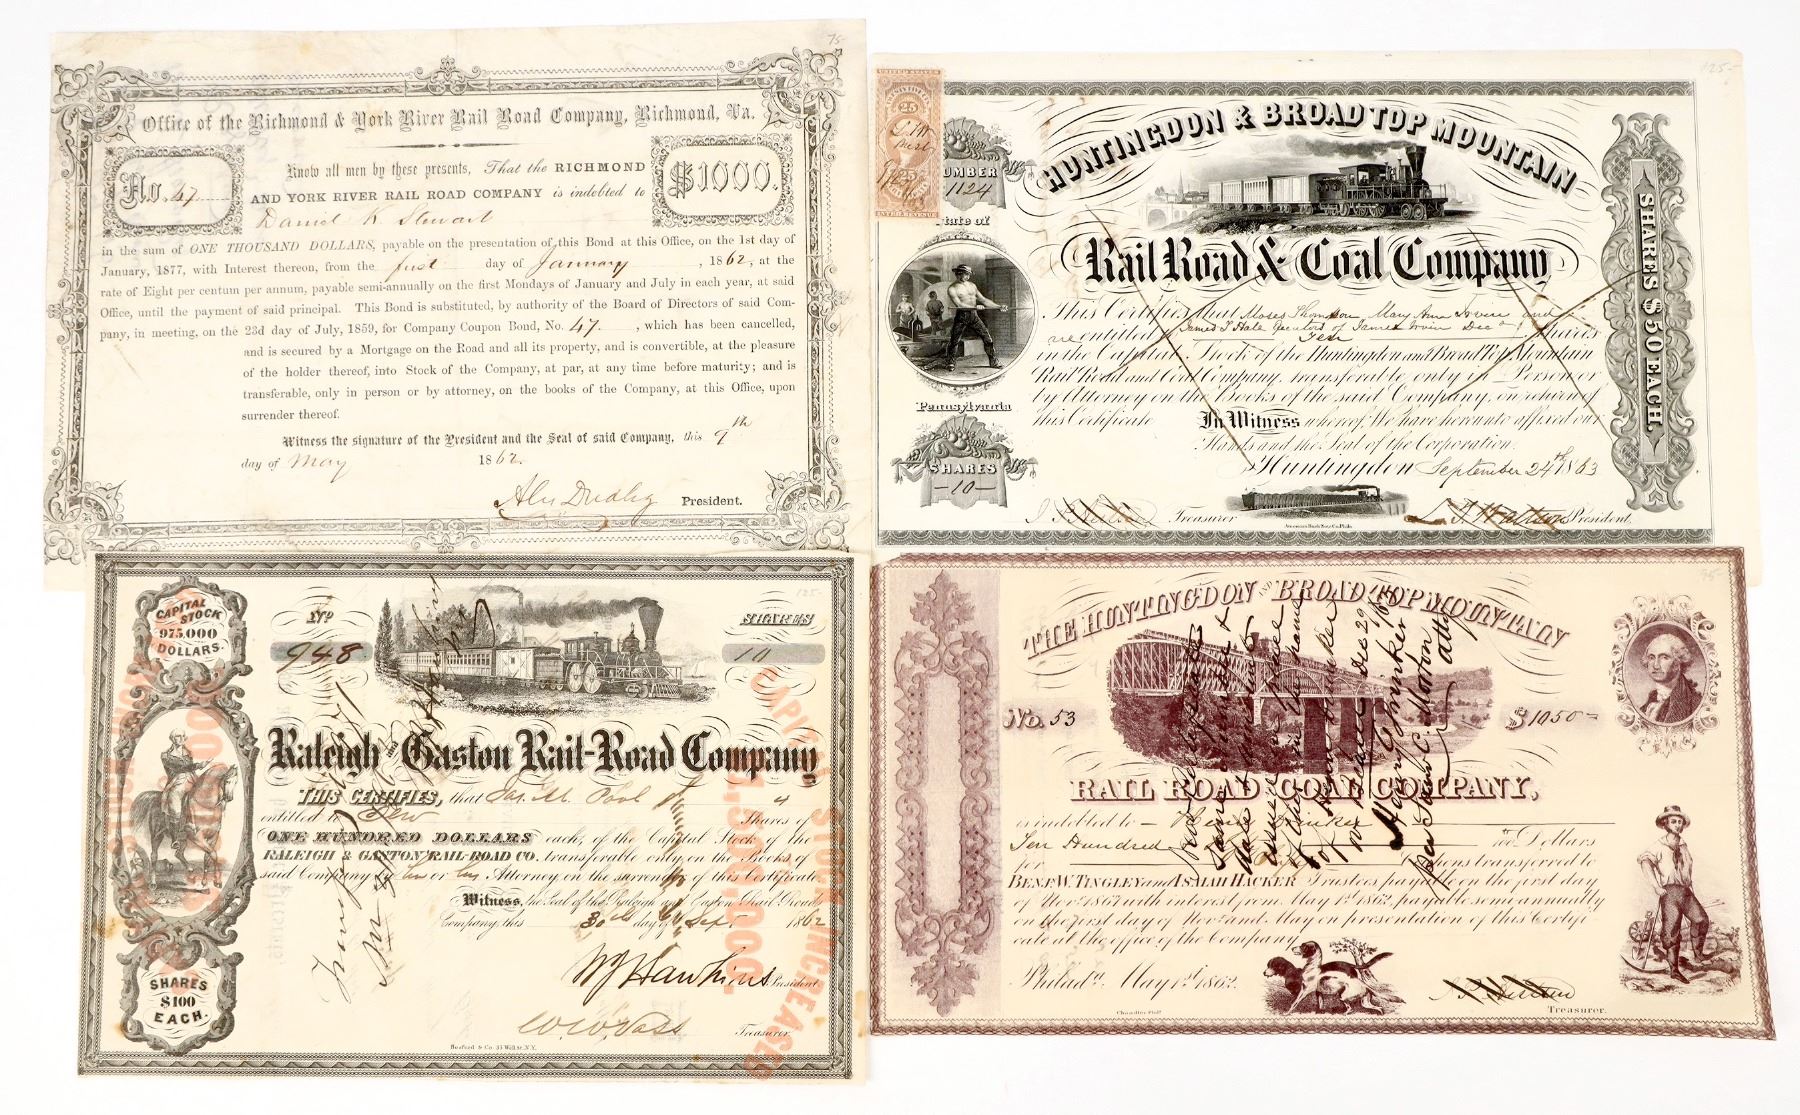 75-
Office of the Richmond & York River Rail Road Company, Richmond, Va.
No. 47
$1000.
Know all men by these presents, That the RICHMOND
AND YORK RIVER RAIL ROAD COMPANY is indebted to
Daniel K Stewart
in the sum of ONE THOUSAND DOLLARS, payable on the presentation of this Bond at this Office, on the 1st day of
January, 1877, with Interest thereon, from the first day of January, 1862, at the
rate of Eight per centum per annum, payable semi-annually on the first Mondays of January and July in each year, at said
Office, until the payment of said principal. This Bond is substituted, by authority of the Board of Directors of said Com-
pany, in meeting, on the 23d day of July, 1859, for Company Coupon Bond, No. 47, which has been cancelled,
and is secured by a Mortgage on the Road and all its property, and is convertible, at the pleasure
of the holder thereof, into Stock of the Company, at par, at any time before maturity; and is
transferable, only in person or by attorney, on the books of the Company, at this Office, upon
surrender thereof.
Witness the signature of the President and the Seal of said Company, this 9th
day of May 1862.
Alex Dudley President.
125-
UNITED STATES
25
25
INTER. REVENUE
NUMBER
1124
State of
Pennsylvania
SHARES
-10-
HUNTINGDON & BROAD TOP MOUNTAIN
Rail Road & Coal Company
SHARES $50 EACH
This Certifies that Moses Thompson Mary Ann Irvin and
James T Hale Executors of James Irvin Decd
are entitled to Ten Shares
in the Capital Stock of the Huntingdon and Broad Top Mountain
Rail Road and Coal Company, transferable only in Person or
by Attorney on the Books of the said Company, on return of
this Certificate In Witness whereof We have hereunto affixed our
Hands and the Seal of the Corporation.
Huntingdon September 24th 1863
Treasurer
President.
American Bank Note Co. Phila.
CAPITAL
STOCK
975,000
DOLLARS.
No
948
SHARES
10
125-
Raleigh and Gaston Rail-Road Company
THIS CERTIFIES, that Jas. M. Pool
entitled to Ten Shares of
ONE HUNDRED DOLLARS each, of the Capital Stock of the
RALEIGH & GASTON RAIL-ROAD CO. transferable only on the Books of
said Company by him or his Attorney on the surrender of this Certificate
Witness, the Seal of the Raleigh and Gaston Rail Road
Company, this 30th day of Sep. 1862
W J Hawkins President
W. W. Vass Treasurer.
SHARES
$100
EACH.
CAPITAL STOCK INCREASED
1,500,000.
Hosford & Co. 35 Wall St. N.Y.
75-
THE HUNTINGDON AND BROAD TOP MOUNTAIN
No. 53
$1050-
RAIL ROAD COAL COMPANY,
is indebted to
Ten Hundred Dollars
for
BENJ. W. TINGLEY and ISAIAH HACKER Trustees payable on the first day
of Novr. 1867 with interest from May 1st 1862, payable semi annually
on the first day of Novr. and May on presentation of this Certifi-
cate at the office of the Company.
Philada. May 1st 1862.
Treasurer.
Chandler Phila.